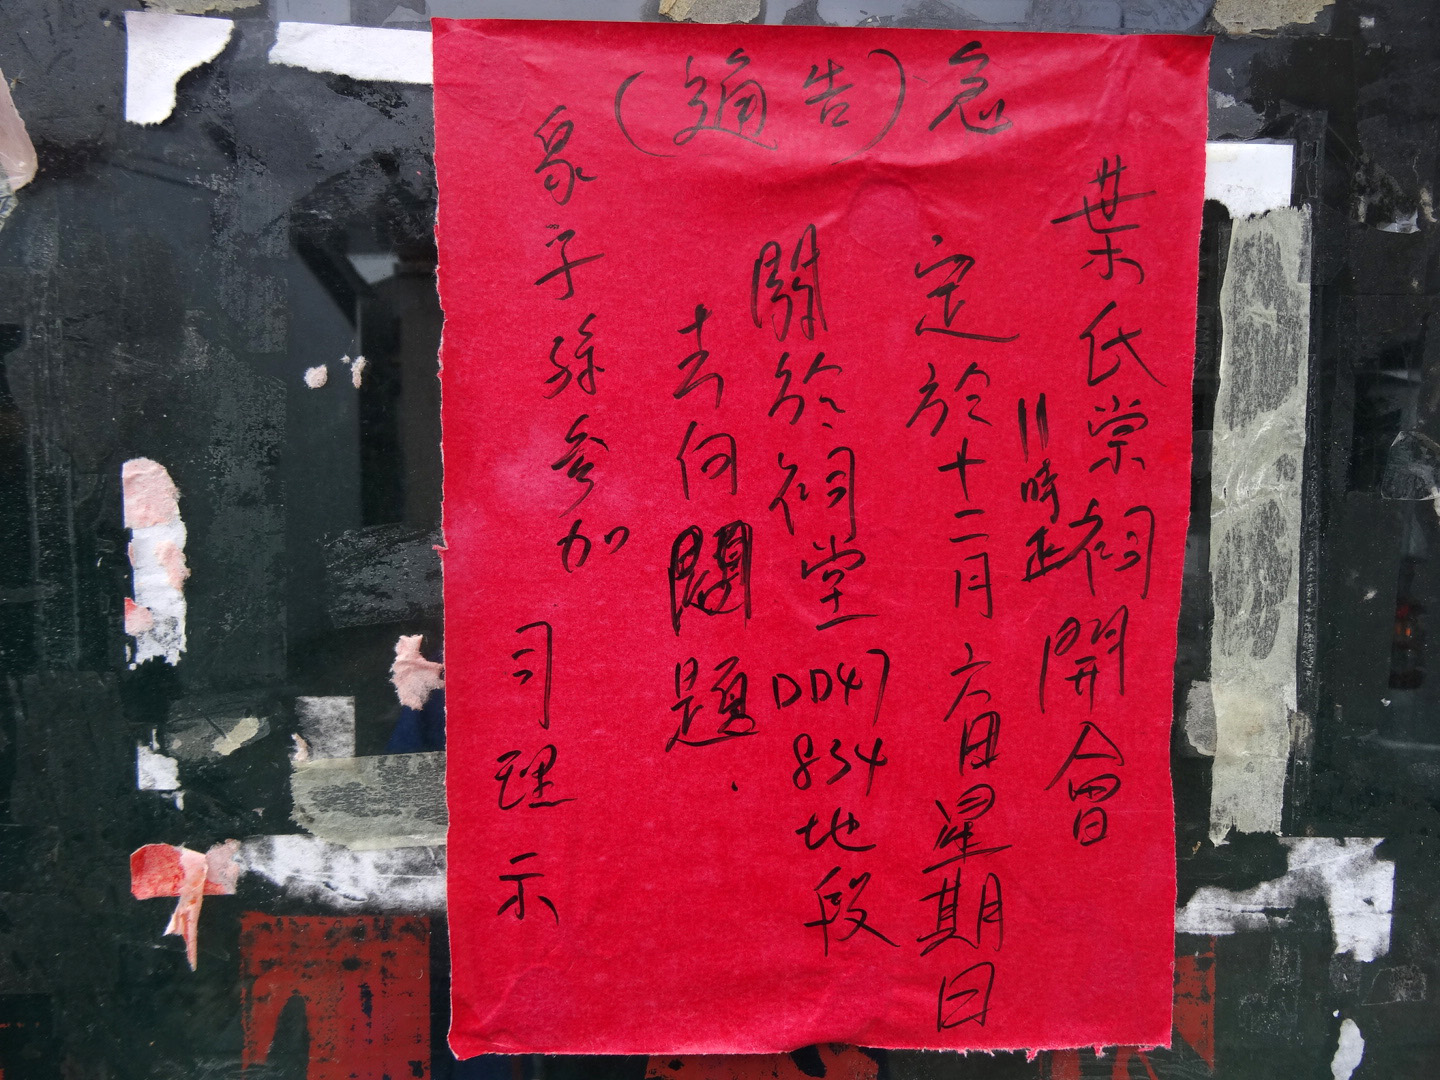 (通告)急
葉氏宗祠開會
11時正
定於十二月六日星期日
關於祠堂DD47 834地段
去向問題.
眾子孫參加
司理示